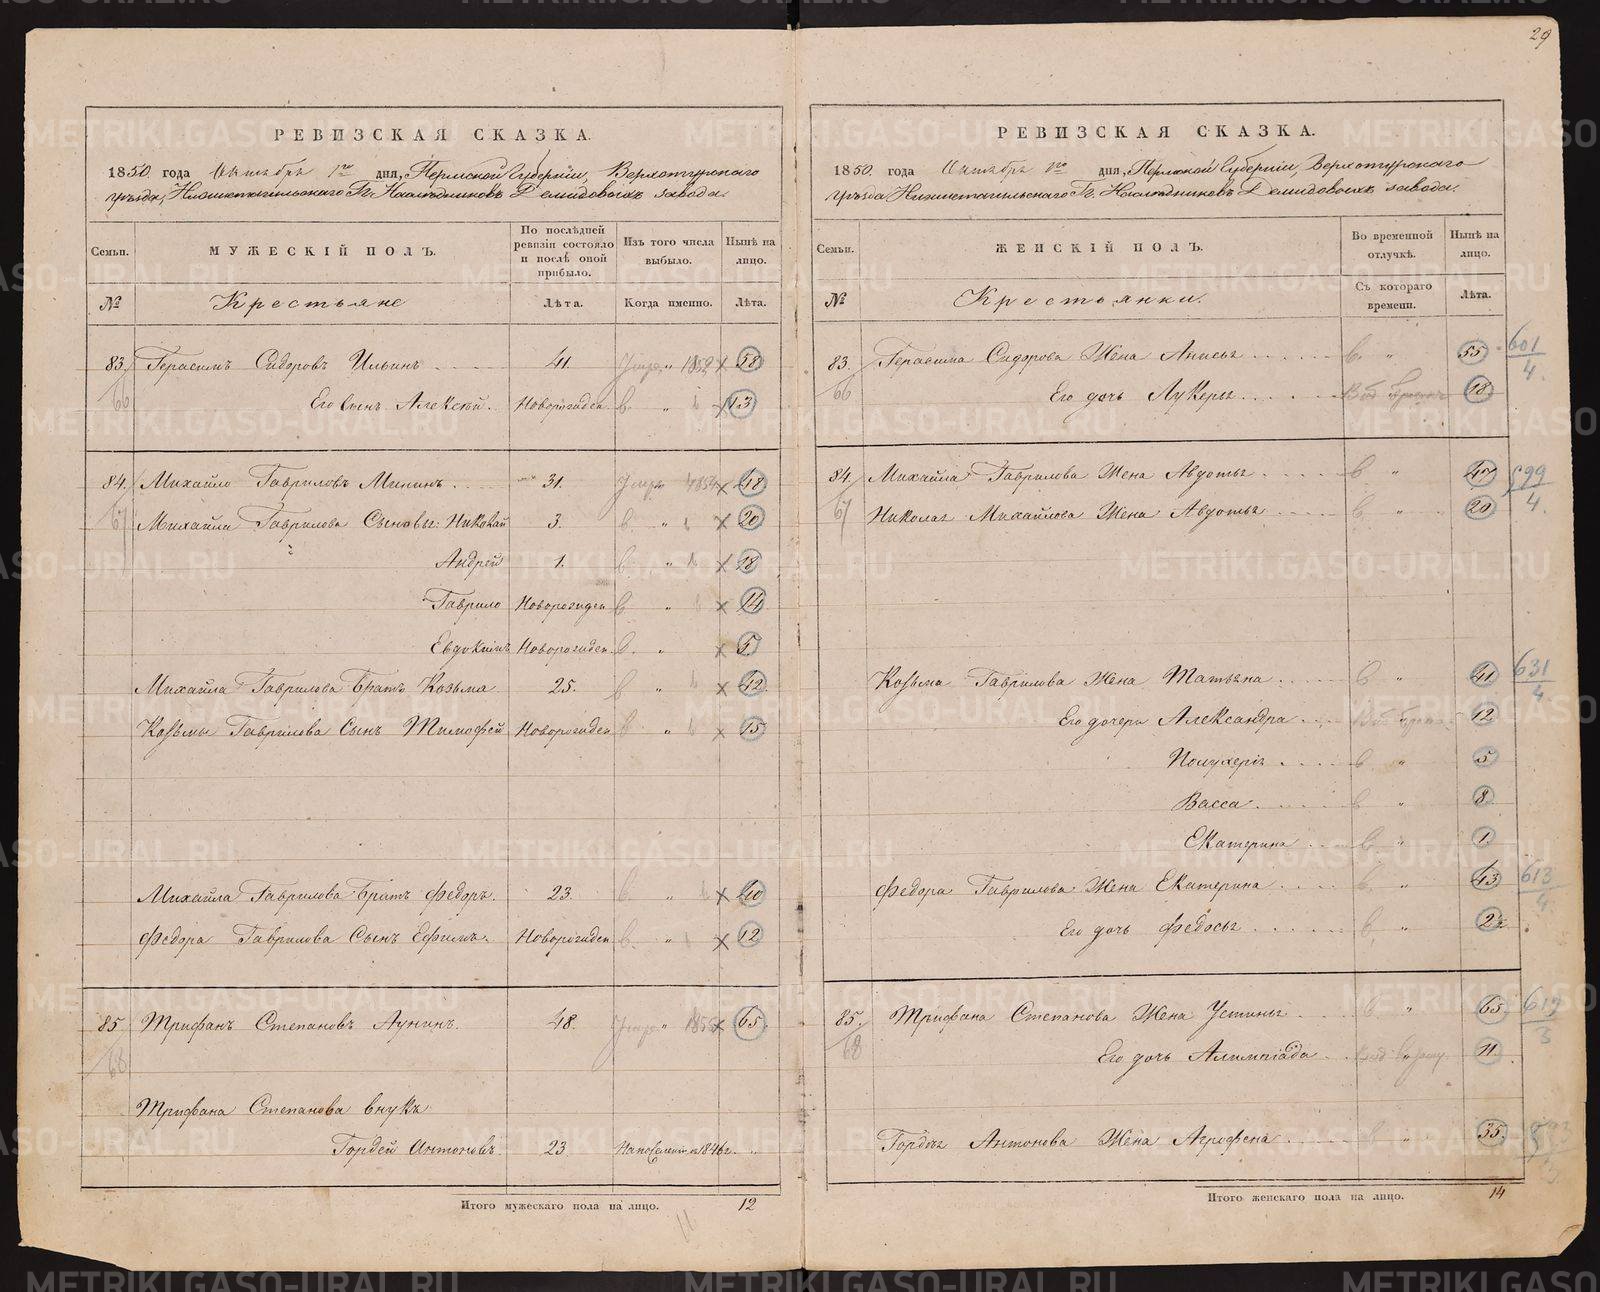 29
РЕВИЗСКАЯ СКАЗКА.
1850 года Октября 1го дня, Пермской Губернии, Верхотурскаго
уѣзда, Нижнетагильскаго Гг. Наслѣдниковъ Демидовыхъ завода.
Семьи. МУЖЕСКІЙ ПОЛЪ. По послѣдней ревизіи состояло и послѣ оной прибыло. Изъ того числа выбыло. Нынѣ на лицо.
№ Крестьяне Лѣта. Когда именно. Лѣта.
83. Герасимъ Сидоровъ Ильинъ 41. 58
66 Его Сынъ Алексѣй. Новорожден. 13
84. Михайло Гавриловъ Мининъ 31. 48
67 Михайлы Гаврилова Сыновья: Николай 3. 20
Андрей 1. 18
Гаврило Новорожден 14
Евдокимъ Новорожден. 5
Михайла Гаврилова Братъ Козьма 25. 42
Козьмы Гаврилова Сынъ Тимофей Новорожден 15
Михайла Гаврилова Братъ Федоръ. 23. 40
Федора Гаврилова Сынъ Ефимъ. Новорожден 12
85 Трифанъ Степановъ Лунинъ. 48. 65
68
Трифана Степанова внукъ
Гордей Антоновъ 23. На поселеніи въ 1846 г. "
Итого мужескаго пола на лицо. 12
11
РЕВИЗСКАЯ СКАЗКА.
1850 года Октября 1го дня, Пермской Губерніи, Верхотурскаго
уѣзда Нижнетагильскаго Гг. Наслѣдниковъ Демидовыхъ завода.
Семьи. ЖЕНСКІЙ ПОЛЪ. Во временной отлучкѣ. Нынѣ на лицо.
№ Крестьянки. Съ котораго времени. Лѣта.
83. Герасима Сидорова Жена Анисья 55 601/4.
66 Его дочь Лукерья 18
84. Михайла Гаврилова Жена Авдотья 47 599/4.
67 Николая Михайлова Жена Авдотья 20
Козьма Гаврилова Жена Татьяна 41 631/4
Его дочери Александра 12
Полухерія 5
Васса 8
Екатерина 1
Федора Гаврилова Жена Екатерина 43 613/4
Его дочь Федосья 2½
85. Трифана Степанова Жена Устинья 65 619/3
68 Его дочь Алимпіада 11
Гордея Антонова Жена Агрофена 35
Итого женскаго пола на лицо. 14
METRIKI.GASO-URAL.RU